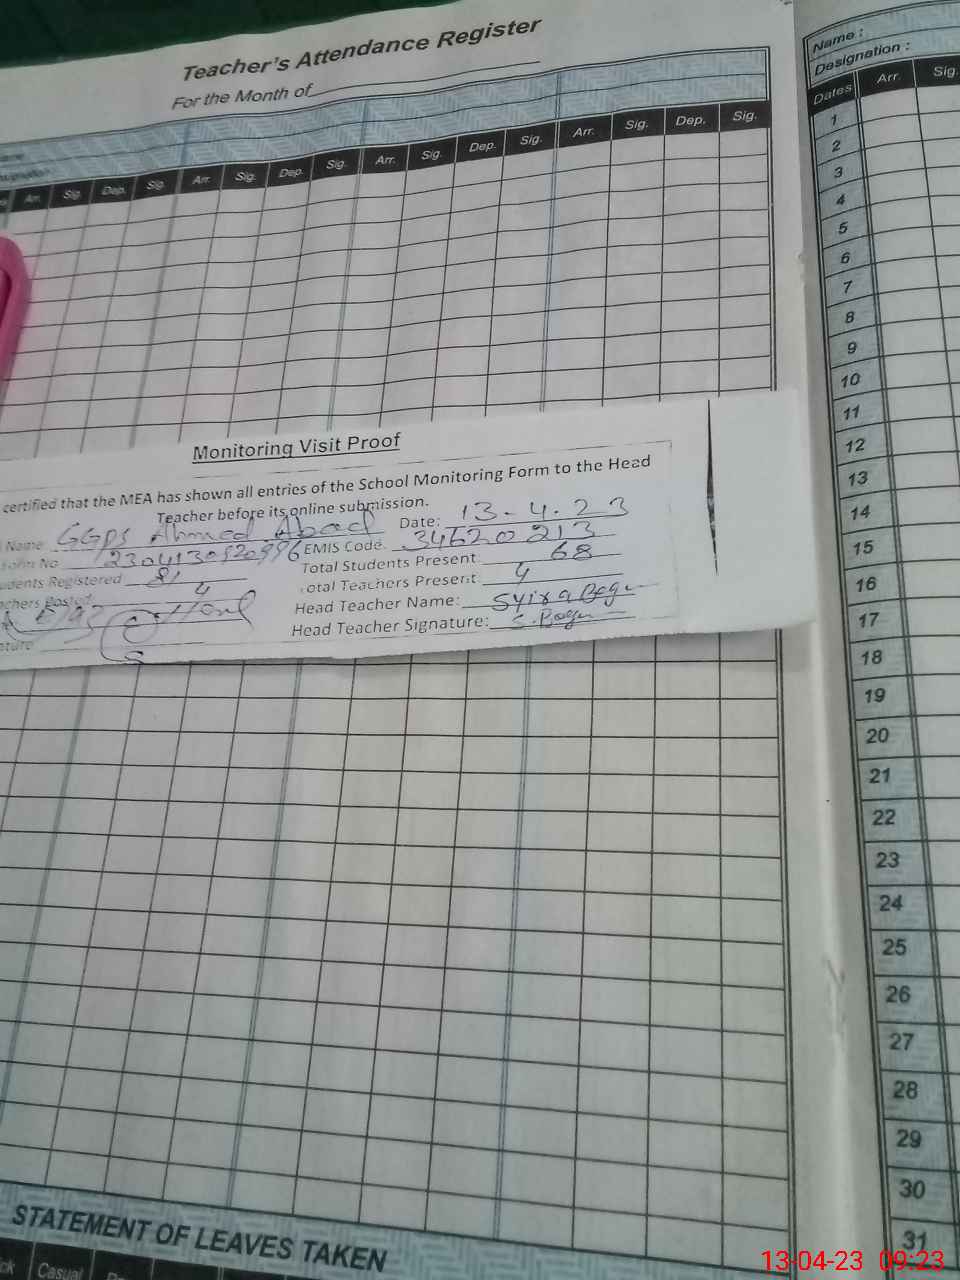 Teacher's Attendance Register
For the Month of
Name :
Designation :
Arr. Sig. Dep. Sig. Arr. Sig. Dep. Sig. Arr. Sig. Dep. Sig. Arr. Sig. Dep. Sig.
Dates Arr. Sig.
1
2
3
4
5
6
7
8
9
10
11
12
13
14
15
16
17
18
19
20
21
22
23
24
25
26
27
28
29
30
31
Monitoring Visit Proof
certified that the MEA has shown all entries of the School Monitoring Form to the Head
Teacher before its online submission.
Name GGPS Ahmed Abad Date: 13-4-23
No EMIS Code: 34620213
Registered 81 Total Students Present: 68
Posted: 4 Total Teachers Present: 4
Head Teacher Name:
Head Teacher Signature:
STATEMENT OF LEAVES TAKEN
Casual
13-04-23 09:23